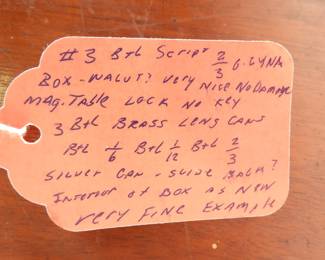 #3 B+L Script 2/3 
Box - Walut? Very Nice No Damage
Mag. Table Lock No Key
3 B+L Brass Lens Cans
B+L 1/6 B+L 1/12 B+L 2/3
Silver Can - Slide
Interior of Box as New
Very Fine Example